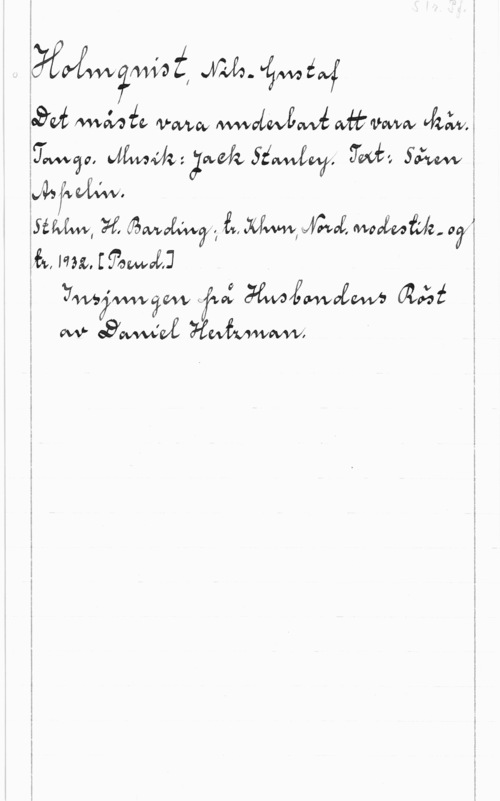 S1r. Pf.
Holmquist, Nils-Gustaf
Det måste vara underbart att vara kär.
Tango. Musik: Jack Stanley. Text: Sören
Aspelin.
Sthlm, H. Barding; tr. Khvn, Nord. nodestik- og
tr, 1932. [Pseud.]
Insjungen på Husbondens Röst
av Daniel Hertzman.